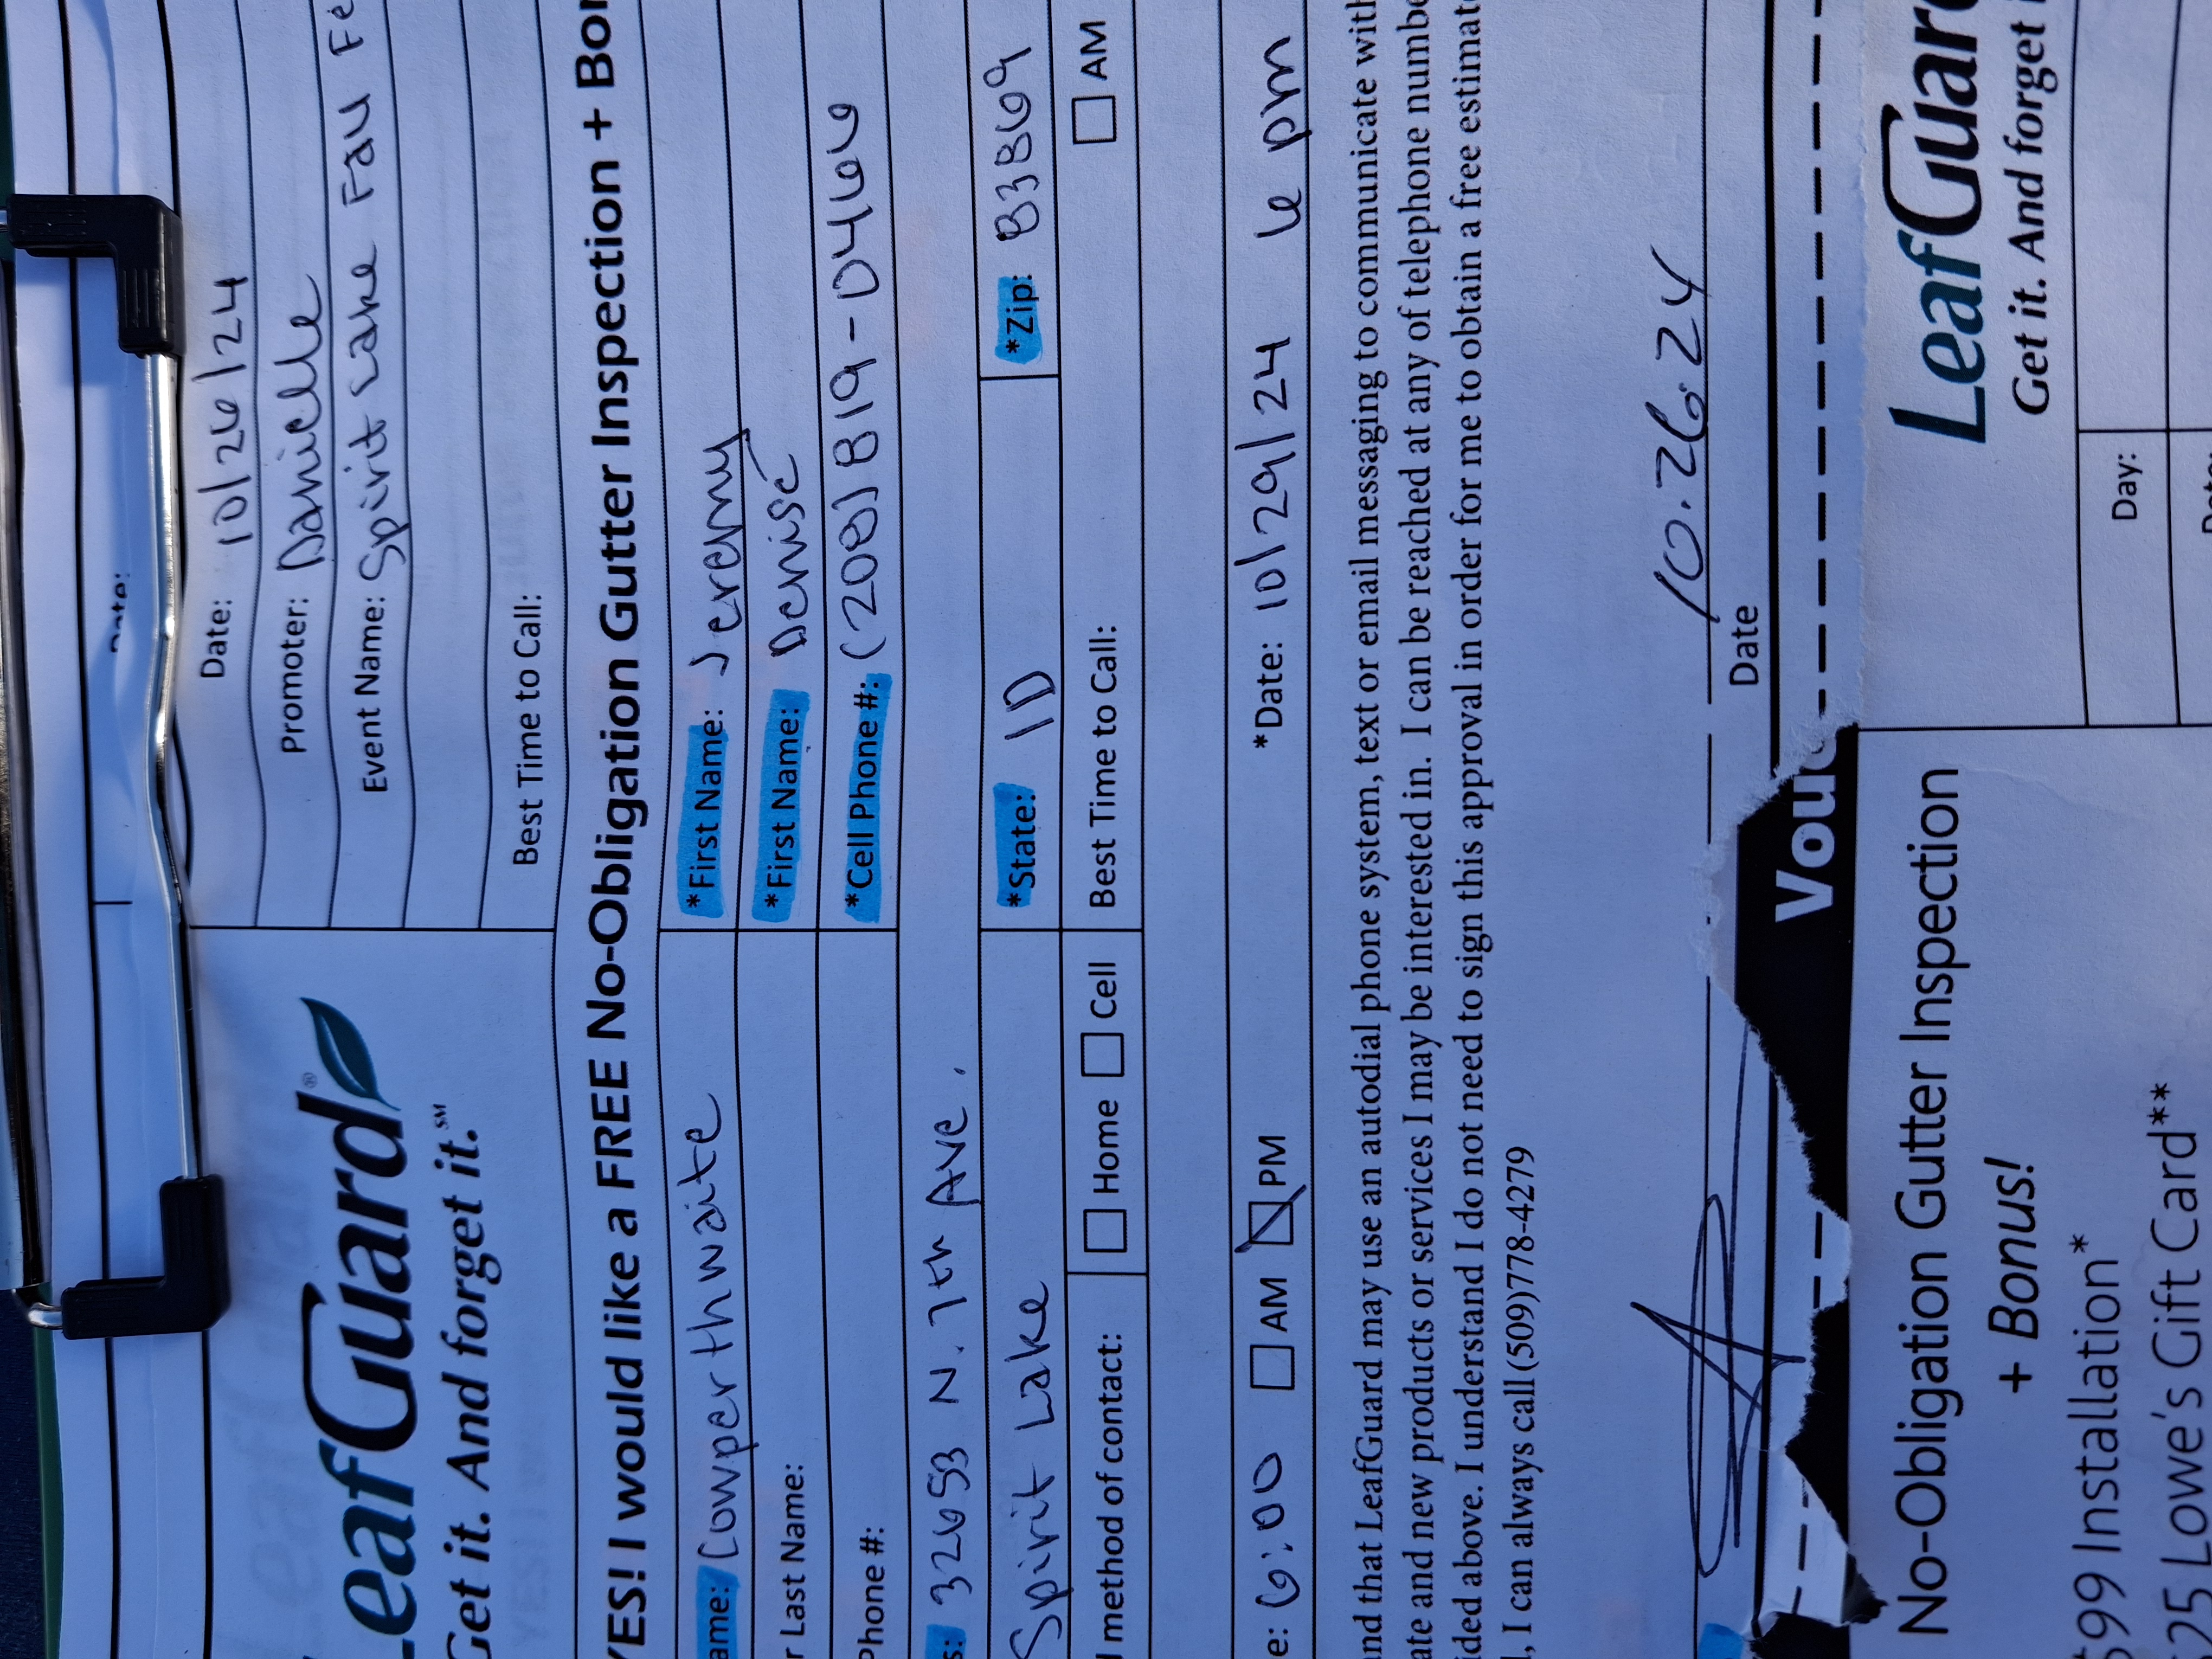 Date:
Date: 10/26/24
Promoter: Danielle
LeafGuard®
Event Name: Spirit Lake Fall Fe
Get it. And forget it.℠
Best Time to Call:
YES! I would like a FREE No-Obligation Gutter Inspection + Bon
ame: Cowperthwaite *First Name: Jeremy
r Last Name: *First Name: Denise
Phone #: *Cell Phone #: (208) 819-0466
s: 32653 N. 7th Ave.
Spirit Lake *State: ID *Zip: 83869
d method of contact: Home Cell Best Time to Call: AM
e: 6:00 AM PM *Date: 10/29/24 6 pm
and that LeafGuard may use an autodial phone system, text or email messaging to communicate with
ate and new products or services I may be interested in. I can be reached at any of telephone numbe
ided above. I understand I do not need to sign this approval in order for me to obtain a free estimate
l, I can always call (509)778-4279
10.26.24
Date
Vouc
No-Obligation Gutter Inspection
+ Bonus!
LeafGuar
Get it. And forget i
$99 Installation*
Day:
$25 Lowe's Gift Card**
Date: